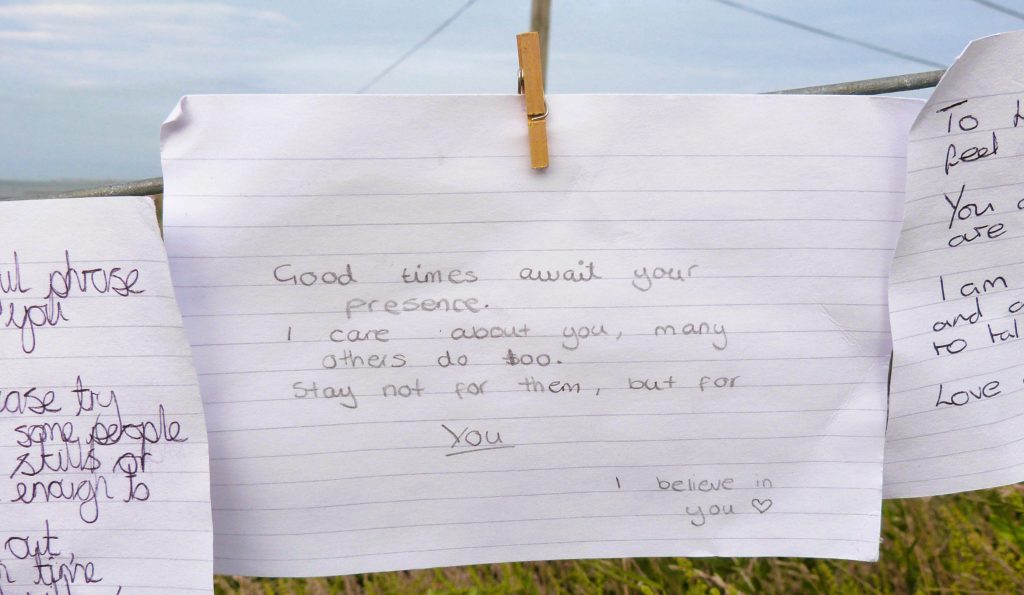 phrase
you
try
some people
stills or
enough to
out,
time
Good times await your
presence.
I care about you, many
others do too.
Stay not for them, but for
You
I believe in
you ♡
To
feel
You
are
I am
and
to
Love